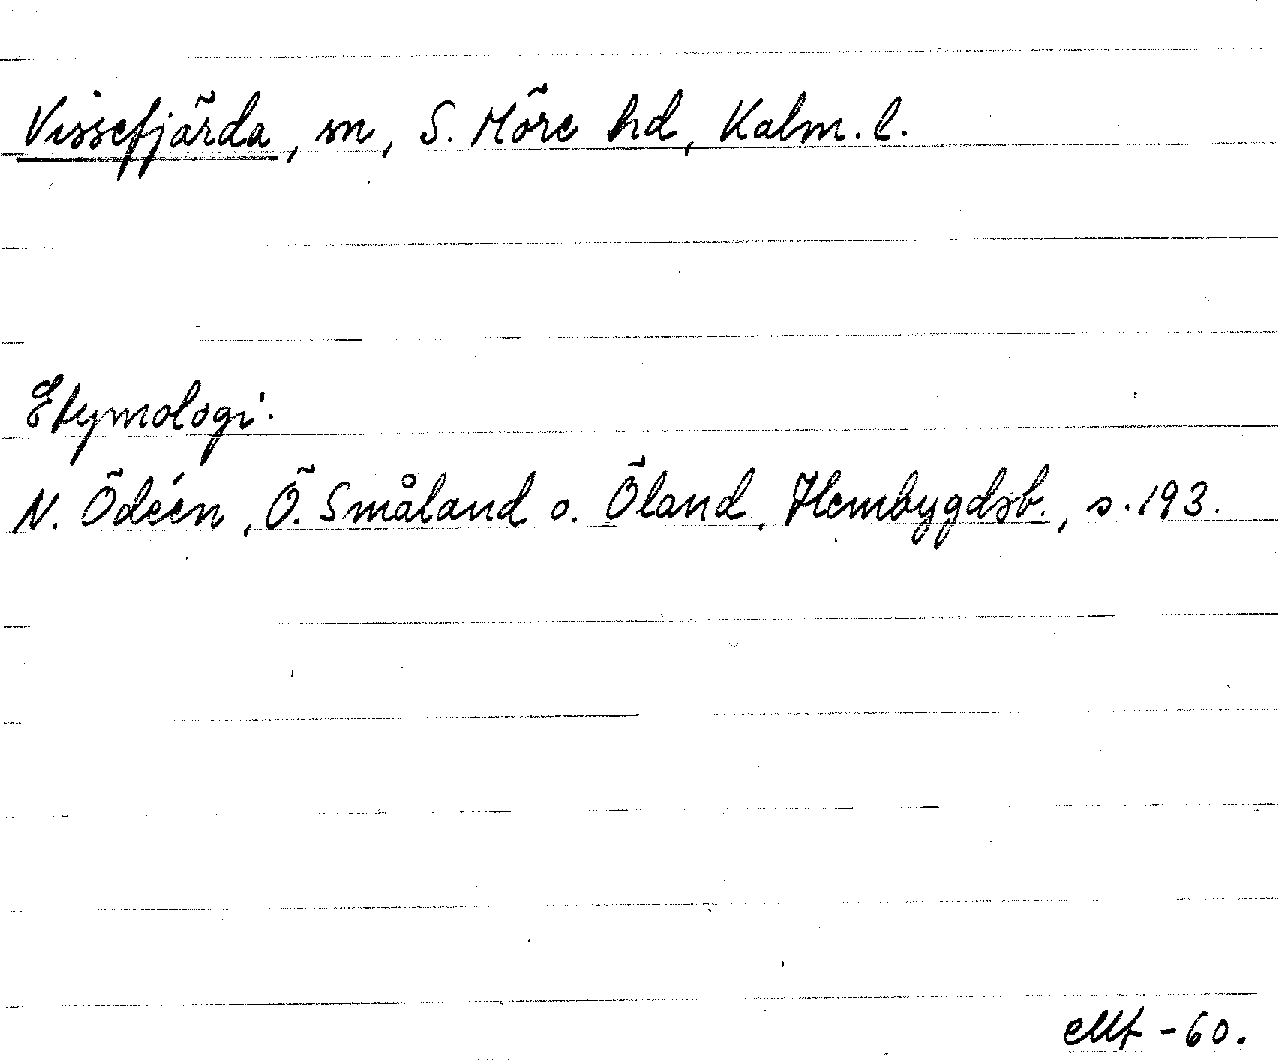 Vissefjärda, sn, S. Möre hd, Kalm. l.
Etymologi.
N. Ödéen, Ö. Småland o. Öland, Hembygdsb., s. 193.
-60.